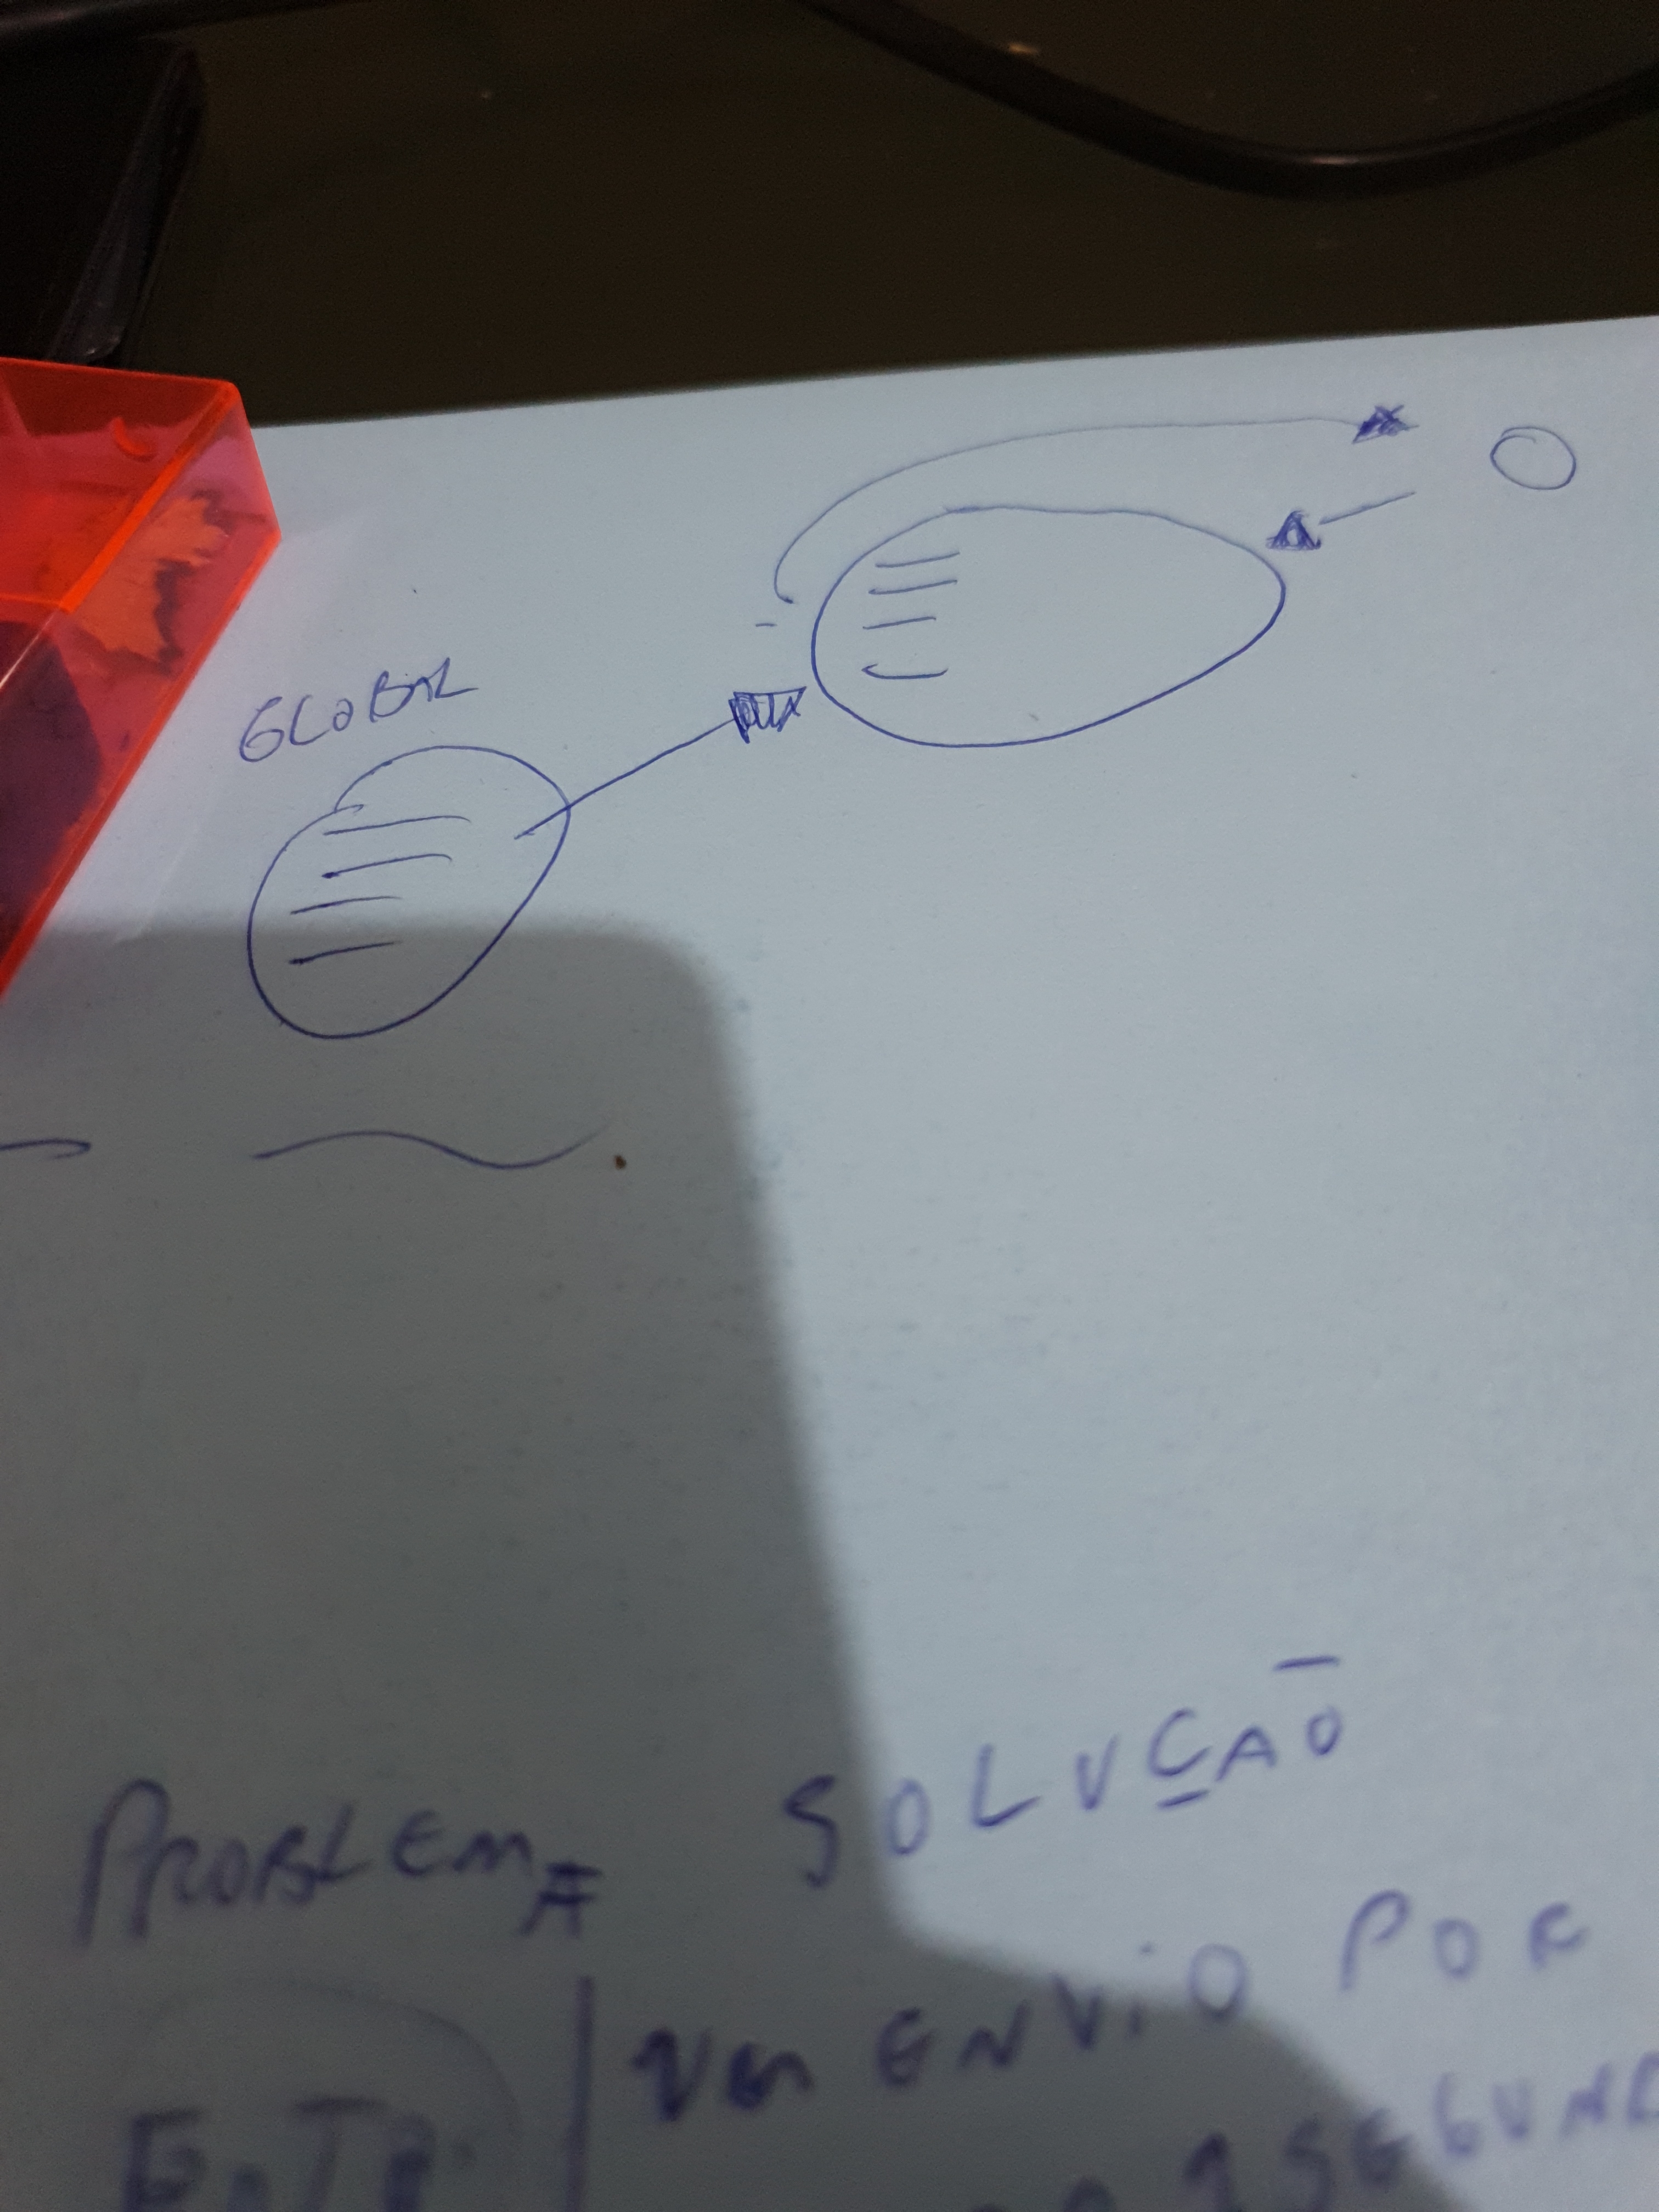 GLOBAL
PROBLEMA SOLUÇAO
UM ENVIO POR
1 SEGUND